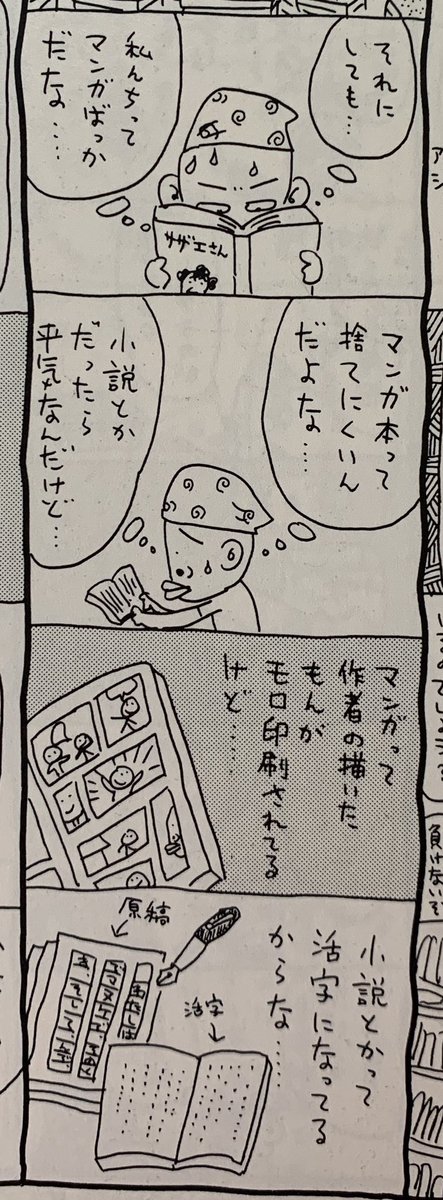 それに
しても…
私んちって
マンガばっか
だな……
サザエさん
マンガ本って
捨てにくいん
だよな……
小説とか
だったら
平気なんだけど…
マンガって
作者の描いた
もんが
モロ印刷されてる
けど……
小説とかって
活字になってる
からな……
原稿
活字
負けないぞ